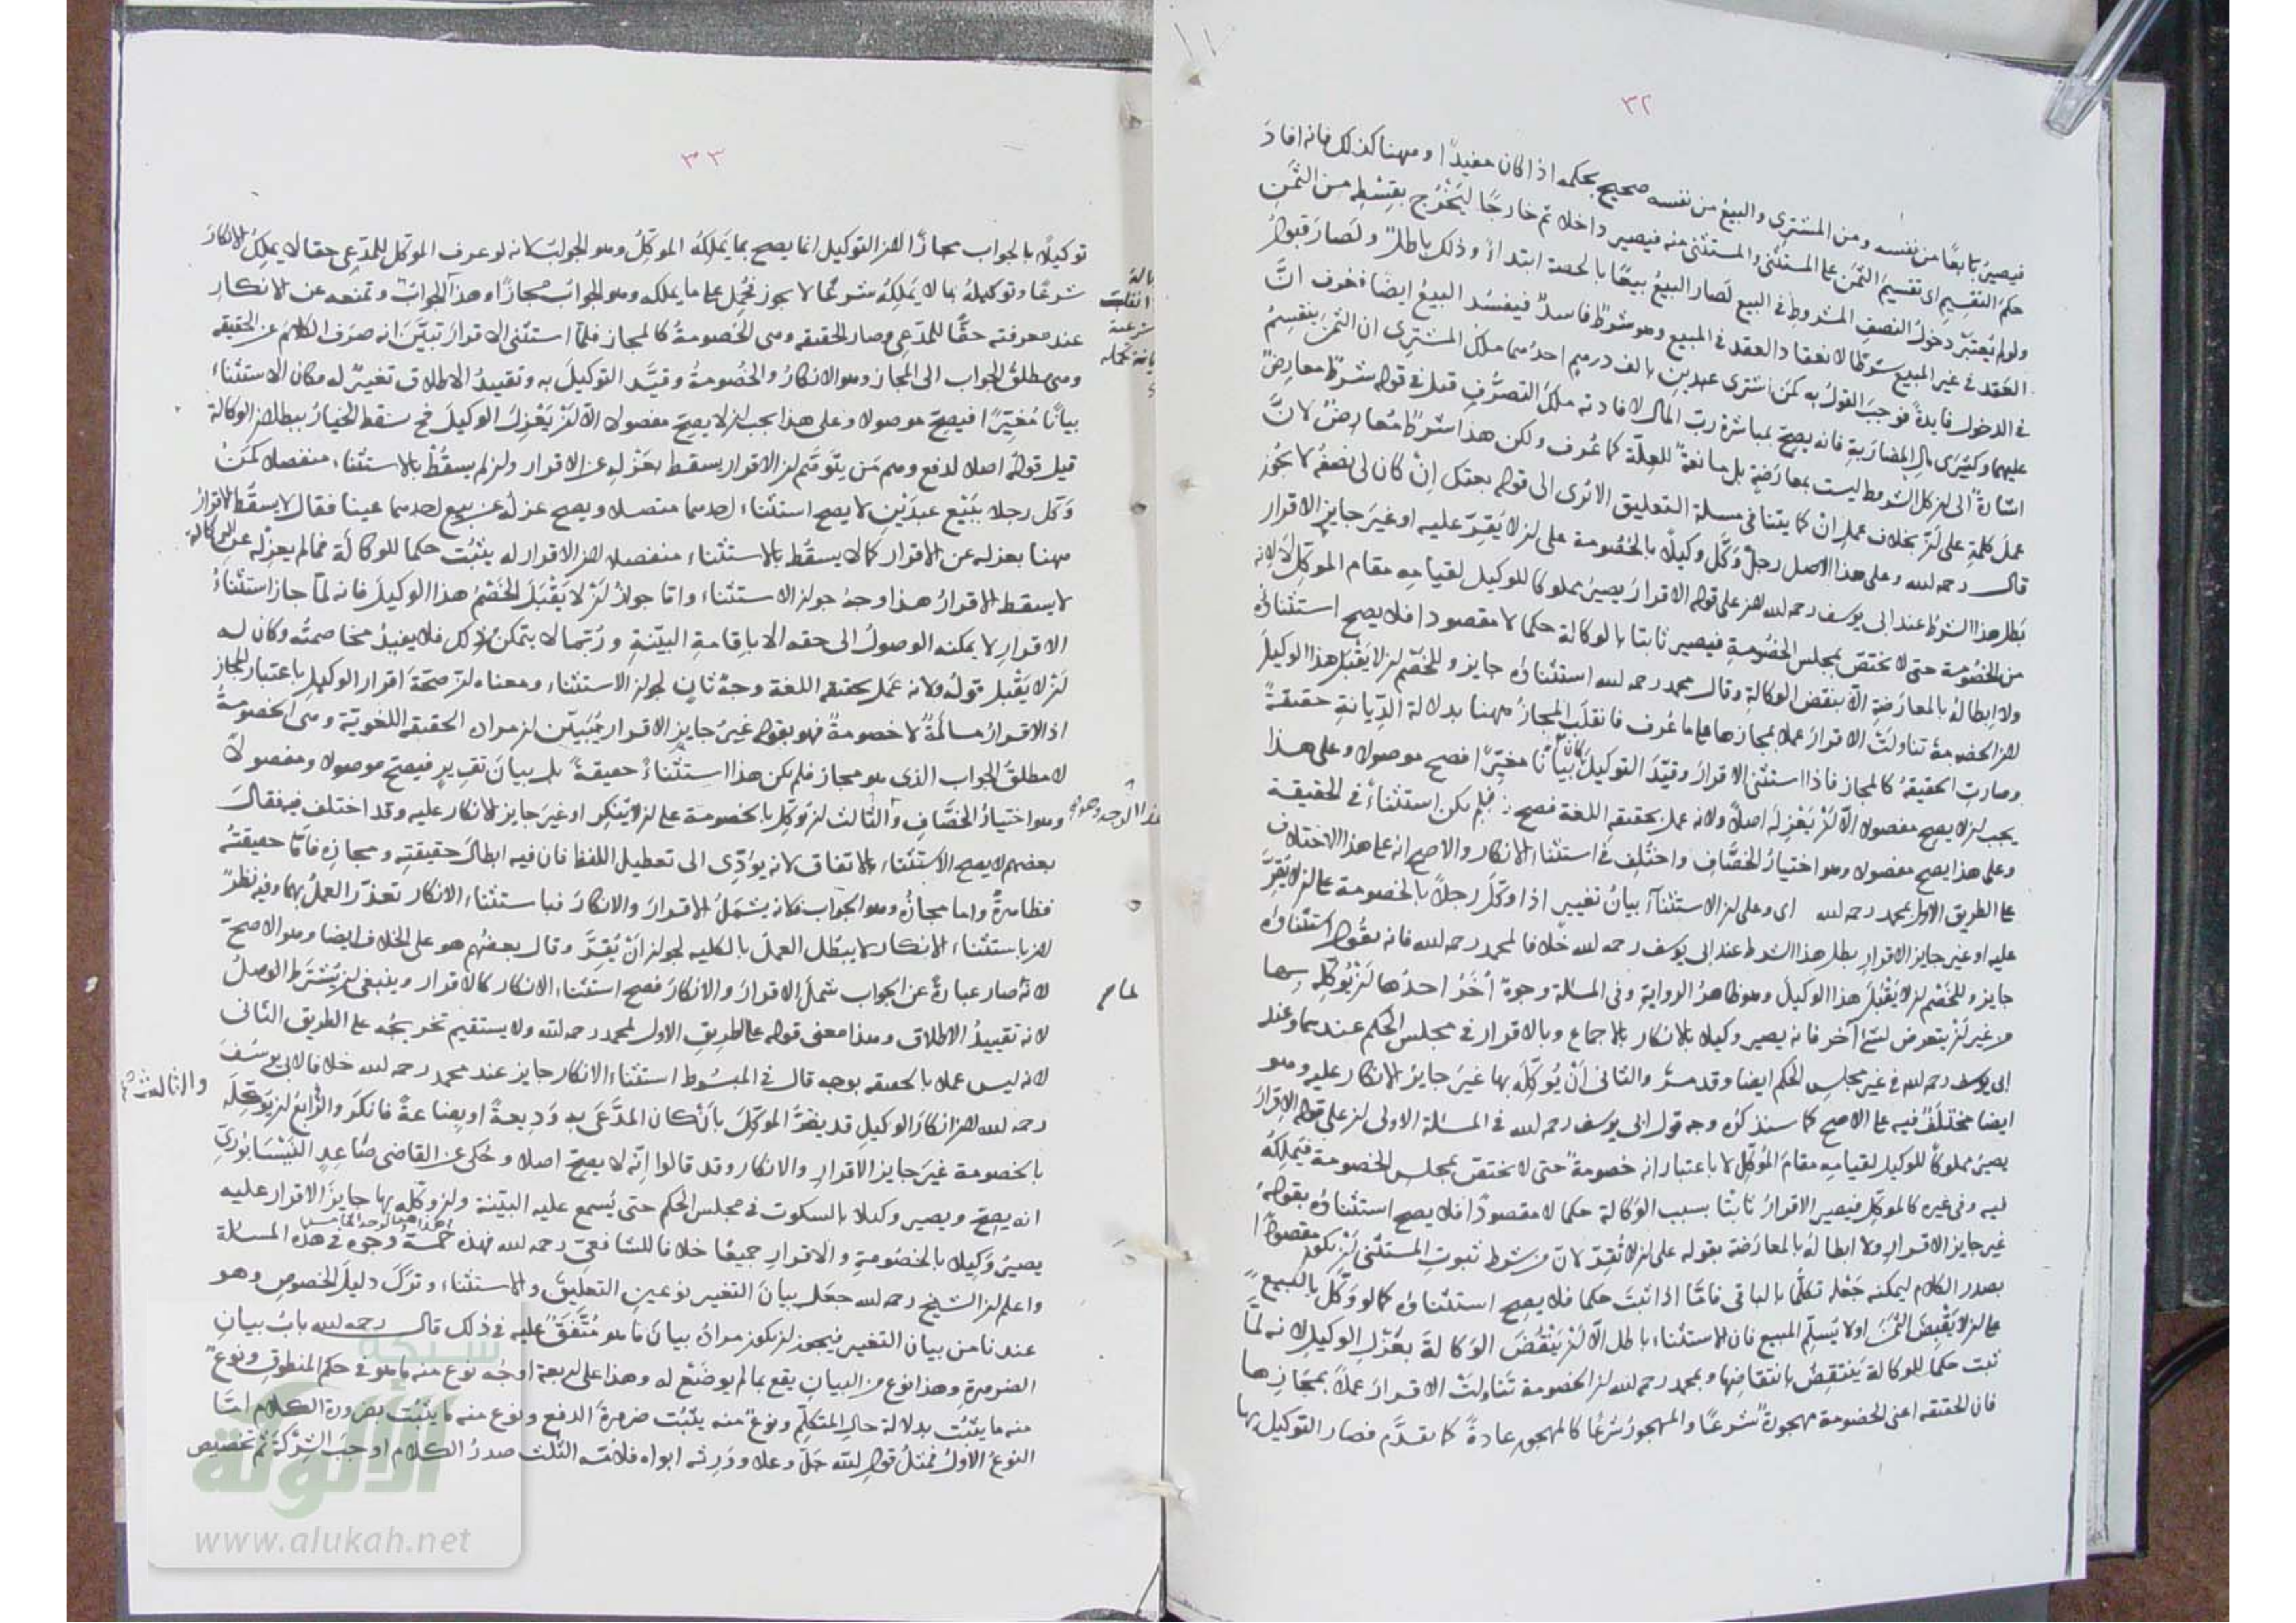 ٣٢
فيصيرُ بايعًا من نفسه ومن المشترى والبيعُ من نفسه صحيح بحكمه اذا كان مفيدًا وههنا كذلك فانه افادَ
حكمَ التقسيمِ اى تقسيمَ الثمن على المستثنى والمستثنى منه فيصير داخلا ثم خارجًا ليَخْرُج بقِسْطِه من الثمنِ
ولو لم يُعتبَر دخولُ النصفِ المشروطِ فى البيع لَصار البيعُ بيعًا بالحصة ابتداءً وذلك باطلٌ ولَصارَ قبولُ
العَقد فى غير المبيع شرطًا لانعقاد العقد فى المبيع وهو شرطٌ فاسدٌ فيفسُد البيعُ ايضًا فعُرف انَّ
فى الدخول فايدةً فوجبَ القولُ به كمن اشترى عبدينِ بالف درهم احدُهما ملكُ المشترى ان الثمنَ ينقسِمُ
عليهما وكشِرَى مالِ المضاربةِ فانه يصحّ بمباشرة ربّ المال لافادته ملكَ التصرُّفِ قيل فى قوله شرطٌ معارِضٌ
اشارةٌ الى ان كل الشروط ليست بمعارَضةٍ بل مانعةٌ للعلّة كما عُرف ولكن هذا شرطٌ مُعارِضٌ لانَّ
عملَ كلمةِ على ان بخلاف عمل اِنْ كما بيّنا فى مسلة التعليق الا ترى الى قوله بعتك اِنْ كان لى نصفُه لا يجوز
قال رحمه الله وعلى هذا الاصل رجلٌ وَكَّل وكيلًا بالخصومة على ان لا يُقِرّ عليه او غيرَ جايزِ الاقرار
بَطل هذا الشرطُ عند ابى يوسف رحمه الله لان على قوله الاقرارَ يصيرُ مملوكا للوكيل لقيامه مقام الموكِّل لا لانه
من الخصُومة حتى لا يختصّ بمجلس الخصُومةِ فيصير ثابتا بالوكالة حكما لا مقصودا فلا يصح استثناؤُه
ولا ابطالُه بالمعارَضةِ الّا بنقض الوكالةِ وقال محمد رحمه الله استثناؤُه جايز وللخَصْم ان لا يَقْبَل هذا الوكيلَ
لان الخصومةَ تناولَتْ الاقرارَ عملا بمجازها على ما عُرف فانقلَبَ المجازُ ههنا بدلالة الدِّيانةِ حقيقةً
وصارتِ الحقيقةُ كالمجاز فاذا استثنى الاقرارَ وقيَّد التوكيلَ كان بيانًا مغيّرًا فصح موصولا وعلى هذا
يجب ان لا يصح مفصولا الّا ان يَعْزِلَه اصلًا ولانه عملٌ بحقيقه اللغة فصح فلم يكن استثناءً فى الحقيقة
وعلى هذا يصح مفصولا وهو اختيارُ الخصَّافِ واختُلِف فى استثناءِ الانكار والاصح انه على هذا الاختلاف
على الطريق الاول لمحمد رحمه الله اى وعلى ان الاستثناءَ بيانُ تغييرٍ اذا وَكَّلَ رجلًا بالخصومة على ان لا يُقِرَّ
عليه او غير جايز الاقرارِ بطل هذا الشرط عند ابى يوسف رحمه الله خلافا لمحمد رحمه الله فانه يقُول استثناؤه
جايز وللخَصْم ان لا يَقْبَل هذا الوكيلَ وهو ظاهرُ الروايةِ وفى المسلة وجوهٌ أُخَرُ احدُها ان يُوَكِّلَه بها
من غير ان يتعرض لشئٍ آخر فانه يصير وكيلا بالانكار بالاجماع وبالاقرار فى مجلس الحكم عندهما وعند
ابى يوسف رحمه الله فى غير مجلسِ الحكم ايضا وقد مرّ والثانى أنْ يُوَكِّلَه بها غيرَ جايزِ الانكار عليه وهو
ايضا مختلَفٌ فيه على الاصح كما سنذكرُه وجه قول ابى يوسف رحمه الله فى المسلة الاولى ان على قوله الاقرارَ
يصيرُ مملوكًا للوكيل لقيامه مقامَ المُوكِّل لا باعتبار انه خصومةٌ حتى لا يختصّ بمجلس الخصومة فيَملِكُه
فيه وفى غيره كالموكّل فيصير الاقرارُ ثابتًا بسبب الوَكالة حكما لا مقصودًا فلا يصح استثناؤُه بقوله
غير جايز الاقرارِ ولا ابطالُهُ بالمعارَضة بقوله على ان لا تُقِرّ لانّ من شرط ثبوتِ المستثنى ان يكون مقصودًا
بصدر الكلام ليمكنه جَعْلُه تكلُّمًا بالباقى فامّا اذا ثبتَ حكما فلا يصح استثناؤُه كما لو وَكَّلَ بالبيعِ
على ان لا يَقْبِضَ الثمنَ او لا يُسلِّمَ المبيع فان الاستثناءَ باطل الّا ان يَنْقُضَ الوَكالةَ بعَزْلِ الوكيل لانه لمّا
ثبت حكما للوكالة يَنتقِضُ بانتقاضِها ولمحمد رحمه الله ان الخصومة تَناولَتْ الاقرارَ عملًا بمجَازِها
فان الحقيقه اعنى الخصومة مهجورةٌ شرعًا والمهجورُ شرعًا كالمهجور عادةً كما تقدَّم فصار التوكيل بها
٣٣
توكيلًا بالجواب مجازًا لان التوكيل انما يصح بما يَملِكُه الموكِّلُ وهو الجوابُ لانه لو عرف الموكّل للمدّعِى حقا لا يملِكُ الانكارَ
شرعًا وتوكيلُهُ بما لا يَملِكُه شرعًا لا يجوز فحُمِل على ما يملكه وهو الجوابُ مجازًا وهذا الجوابُ وتمنعه عن الانكار
عند معرفته حقًّا للمدّعِى وصار الحقيقه وهى الخصُومةُ كالمجاز فلمّا استثنى الاقرارَ تبيَّنَ انه صرَف الكلامَ عن الحقيقه
وهى مطلَقُ الجواب الى المجاز وهو الانكارُ والخُصُومةُ وقيَّد التوكيلَ به وتقييدُ الاطلاق تغييرٌ له فكان الاستثناءُ
بيانًا مُغيِّرًا فيصحّ موصولا وعلى هذا يجب ان لا يصحّ مفصولا الّا ان يَعْزِلَ الوكيلَ فح سقط الخيارُ ببطلان الوكالة
قيل قولُه اصلا لدفع وهم مَن يتَوهَّم ان الاقرار يسقط بعَزْلِه عن الاقرار وان لم يسقُطْ بالاستثناء منفصلا كمَنْ
وَكّل رجلا ببَيْع عبدَيْنِ لا يصح استثناءُ احدهما منفصلا ويصح عزلُه عن بيع احدهما عينا فقال لا يسقُط الاقرارُ
ههنا بعزله عن الاقرار كما لا يسقُط بالاستثناء منفصلا لان الاقرار له يثبُت حكما للوكالَة فما لم يعزِلْه عن الوكالة
لا يسقط الاقرارُ هذا وجهُ جواز الاستثناء وامّا جوازُ ان لا يَقْبَلَ الخَصْمُ هذا الوكيلَ فانه لمّا جاز استثناءُ
الاقرارِ لا يمكنه الوصولُ الى حقه الا باِقامةِ البيّنةِ ورُبّما لا يتمكنُ من ذلك فلا يفيدُ مخاصمتُه وكان له
ان لا يَقْبل قولُه ولانه عمَل بحقيقه اللغة وجهٌ ثانٍ لجواز الاستثناء ومعناه ان صحّةَ اقرار الوكيلِ باعتبار المجاز
اذ الاقرارُ مسالَمةٌ لا خصومةٌ فهو بقوله غيرُ جايز الاقرار مُبَيِّن ان مراده الحقيقه اللغويّة وهى الخصومةُ
لا مطلقُ الجوابِ الذى هو مجاز فلم يكن هذا استثناءً حقيقةً بل بيانَ تقريرٍ فيصحّ موصولا ومفصولًا
وهو اختيارُ الخصَّافِ والثالث ان يُوَكّل بالخصومة على ان لا يُنكِر او غيرَ جايز الانكار عليه وقد اختلف فيه فقالَ
بعضهم لا يصح الاستثناء بالاتفاق لانه يؤدِّى الى تعطيل اللفظ فان فيه ابطالَ حقيقتِه ومجازِه فامّا حقيقتُه
فظاهرةٌ واما مجازُه وهو الجوابُ فلانه يشمَلُ الاقرارَ والانكارَ فباستثناء الانكار تعذّر العملُ بهما وفيه نظرٌ
لان باستثناء الانكار لا يبطل العملُ بالكليه لجواز أنْ يُقِرَّ وقال بعضُهم هو على الخلاف ايضا وهو الاصحّ
لانّه صار عبارةً عن الجواب شملَ الاقرارَ والانكارَ فصح استثناءُ الانكار كالاقرار وينبغى ان يُشترَط الوصلُ
لانه تقييدُ الاطلاق وهذا معنى قوله على الطريقِ الاول لمحمد رحمه الله ولا يستقيم تخريجُه على الطريق الثانى
لانه ليس عملا بالحقيقه بوجه قال فى المبسُوط استثناءُ الانكار جايز عند محمد رحمه الله خلافا لابى يوسُفَ
رحمه الله لان انكارَ الوكيلِ قد يضرُّ الموكِّلَ بأنْ كان المدَّعَى به وَدِيعةً او بِضاعةً فانكَر والرّابعُ ان يُوَكِّلَه
بالخصومة غيرَ جايز الاقرارِ والانكار وقد قالوا اِنّه لا يصحّ اصلا وحُكى عن القاضى صاعدٍ النَيْسابُورىّ
انه يصِحّ ويصير وكيلا بالسكوت فى مجلس الحكم حتى يُسمع عليه البيّنة وان وكّله بها جايزَ الاقرار عليه
يصيرُ وَكِيلا بالخصُومةِ والاقرارِ جميعًا خلافا للشافعىّ رحمه الله فهذه خمسةُ وجوه فى هذه المسالة
واعلم ان الشيخ رحمه الله جعَل بيانَ التغيير نوعين التعليقَ والاستثناءَ وتركَ دليلَ الخصوص وهو
عندنا من بيان التغيير فيجوز ان يكون مرادُه بيانَ ما هو مُتَّفَقٌ عليه فى ذلك قال رحمه الله بابُ بيانِ
الضرورةِ وهذا نوع من البيانِ يقع بما لم يوضَعْ له وهذا على اربعة اوجُه نوع منه ما هو فى حكم المنطوقِ ونوعٌ
منه ما يثبُت بدلالة حالِ المتكلِّم ونوعٌ منه يثبُت ضرورةَ الدفع ونوع منه ما يثبُت بضرورة الكلام امّا
النوعُ الاولُ فمثلُ قول الله جلّ وعلا ووَرِثه ابواه فلامّه الثلث صدرُ الكلام اوجبَ الشركةَ ثم تخصيص
والثالث
شبكة
الألوكة
www.alukah.net